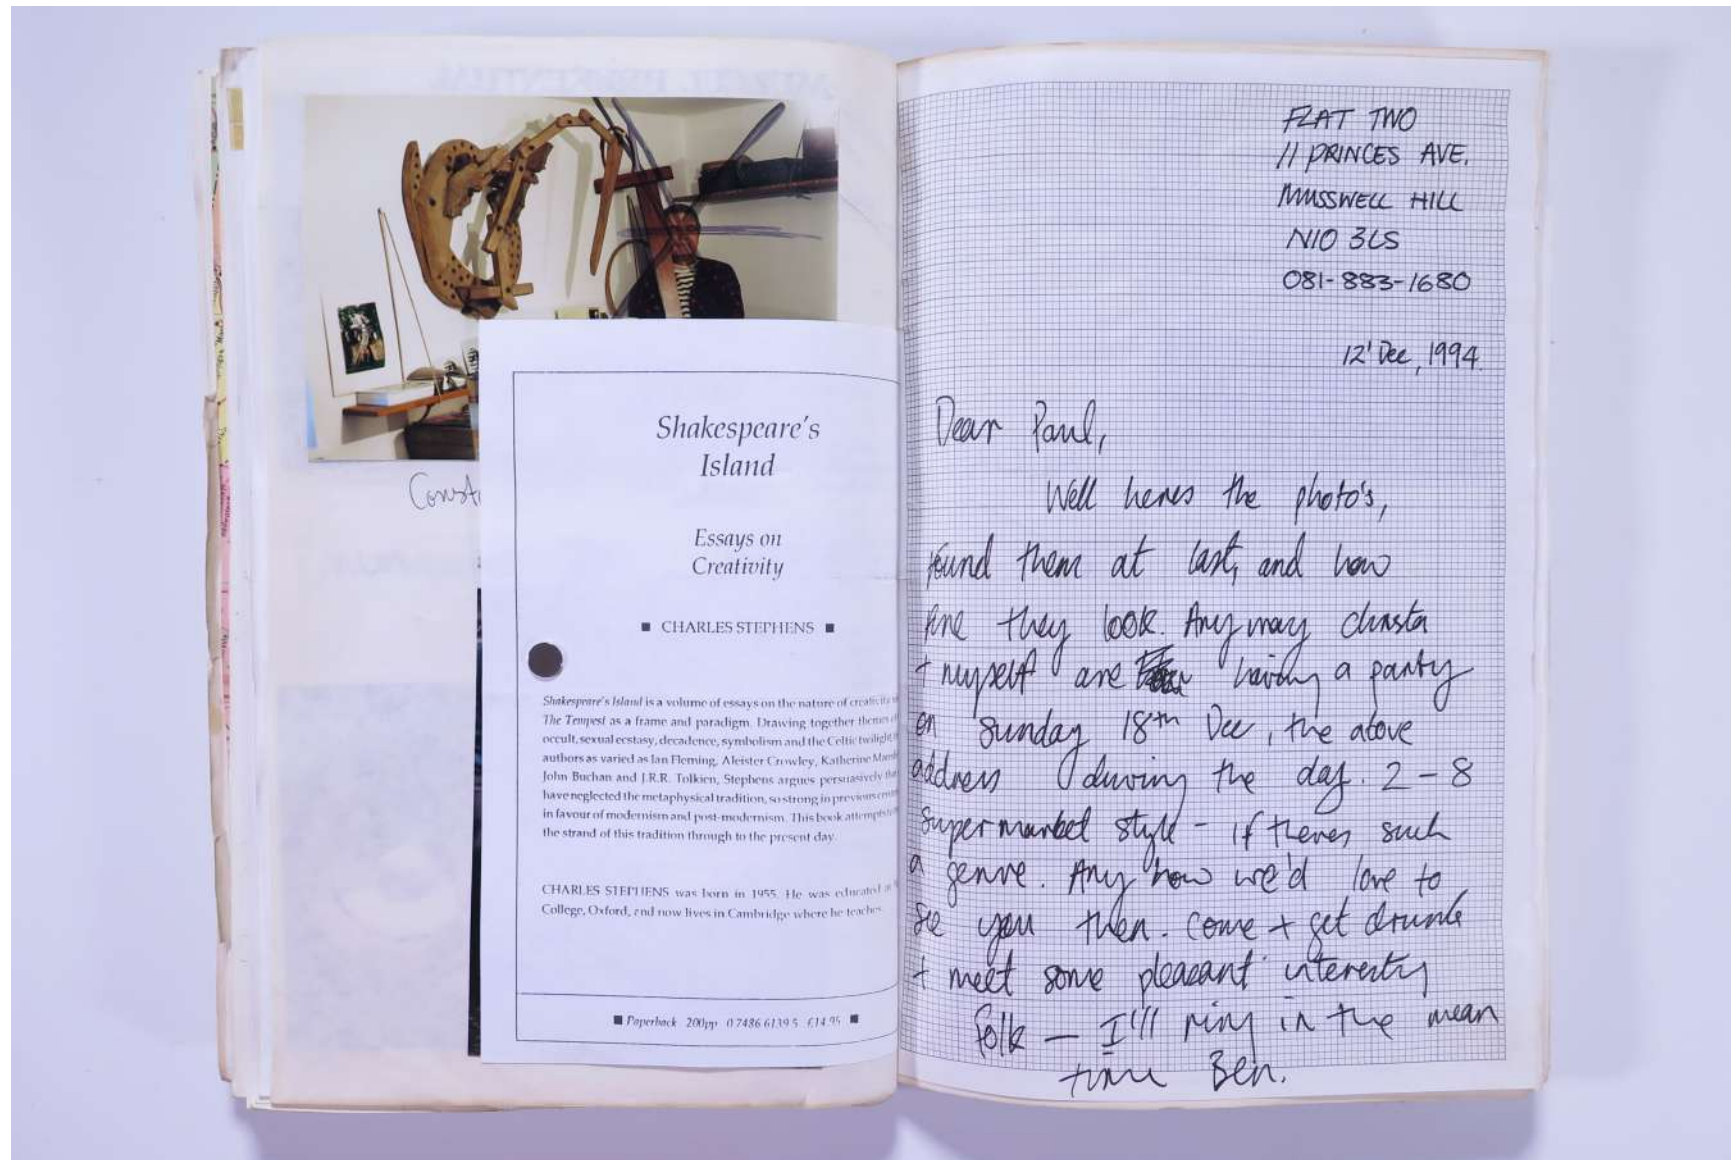 Const
Shakespeare's
Island
Essays on
Creativity
■ CHARLES STEPHENS ■
Shakespeare's Island is a volume of essays on the nature of creativity
The Tempest as a frame and paradigm. Drawing together themes
occult, sexual ecstasy, decadence, symbolism and the Celtic twilight,
authors as varied as Ian Fleming, Aleister Crowley, Katherine
John Buchan and J.R.R. Tolkien, Stephens argues persuasively
have neglected the metaphysical tradition, so strong in previous
in favour of modernism and post-modernism. This book attempts
the strand of this tradition through to the present day.
CHARLES STEPHENS was born in 1955. He was educated
College, Oxford, and now lives in Cambridge where he teaches.
■ Paperback 200pp 0 7486 6139 5 £14.95 ■
FLAT TWO
11 PRINCES AVE.
MUSSWELL HILL
N10 3LS
081-883-1680
12' Dec, 1994.
Dear Paul,
Well heres the photo's,
found them at last, and how
fine they look. Anyway
+ myself are having a party
on Sunday 18th Dec, the above
address during the day. 2-8
supermarket style - if theres such
a genre. Any how we'd love to
see you then. Come + get drunk
+ meet some pleasant interesting
folk — I'll ring in the mean
time Ben.